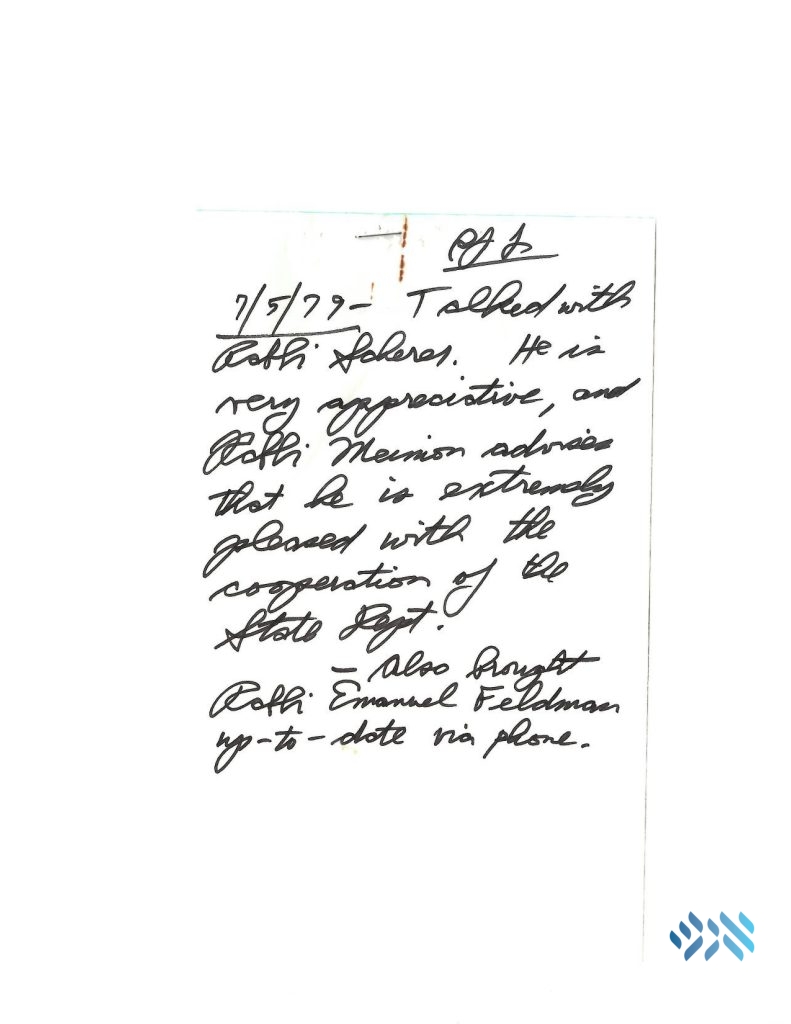 7/5/79 - Talked with
Rabbi Scherer. He is
very appreciative, and
Rabbi Meimon advises
that he is extremely
pleased with the
cooperation of the
State Dept.
- Also brought
Rabbi Emanuel Feldman
up-to-date via phone.